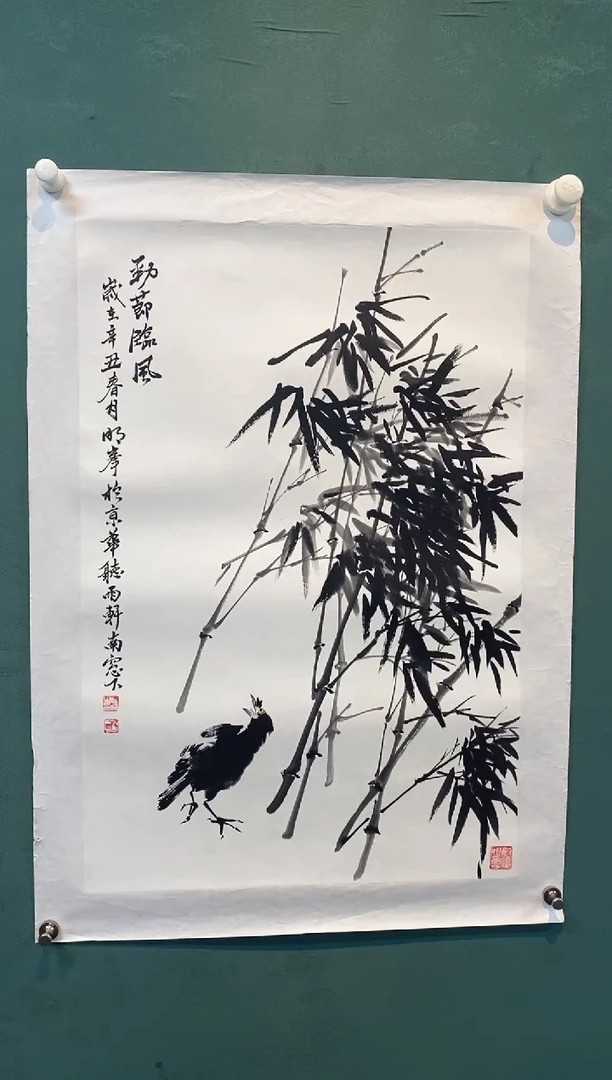 勁節臨風
歲在辛丑春月明峯於京華聽雨軒南窓下